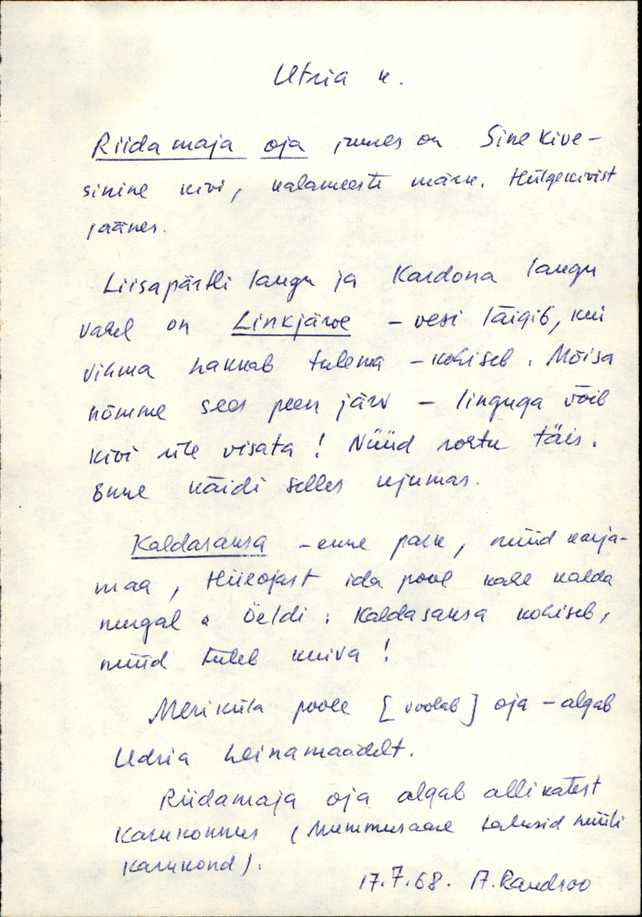 Utria k.
Riidamaja oja juures on Sinekive-
sinine kivi, kalameeste märk. Hülgekivist
jäänes.
Liisapärtli laugu ja Kardona laugu
vahel on Linkjärve - vesi läigib, kui
vihma hakkab tulema - kohiseb. Mõisa
nõmme sees peen järv - linguga võib
kivi üle visata! Nüüd rostu täis.
Enne käidi selles ujumas.
Kaldasansa - enne park, nüüd karja-
maa, Hüeojast ida pool kahe kalda
nurgal. Öeldi: Kaldasansa kohiseb,
nüüd tuleb kuiva!
Meriküla poole [voolab] oja - algab
Udria heinamaadelt.
Riidamaja oja algab allikatest
Karukonnus (Mummusaare talusid hüüti
Karukond).
17.7.68. A. Randroo